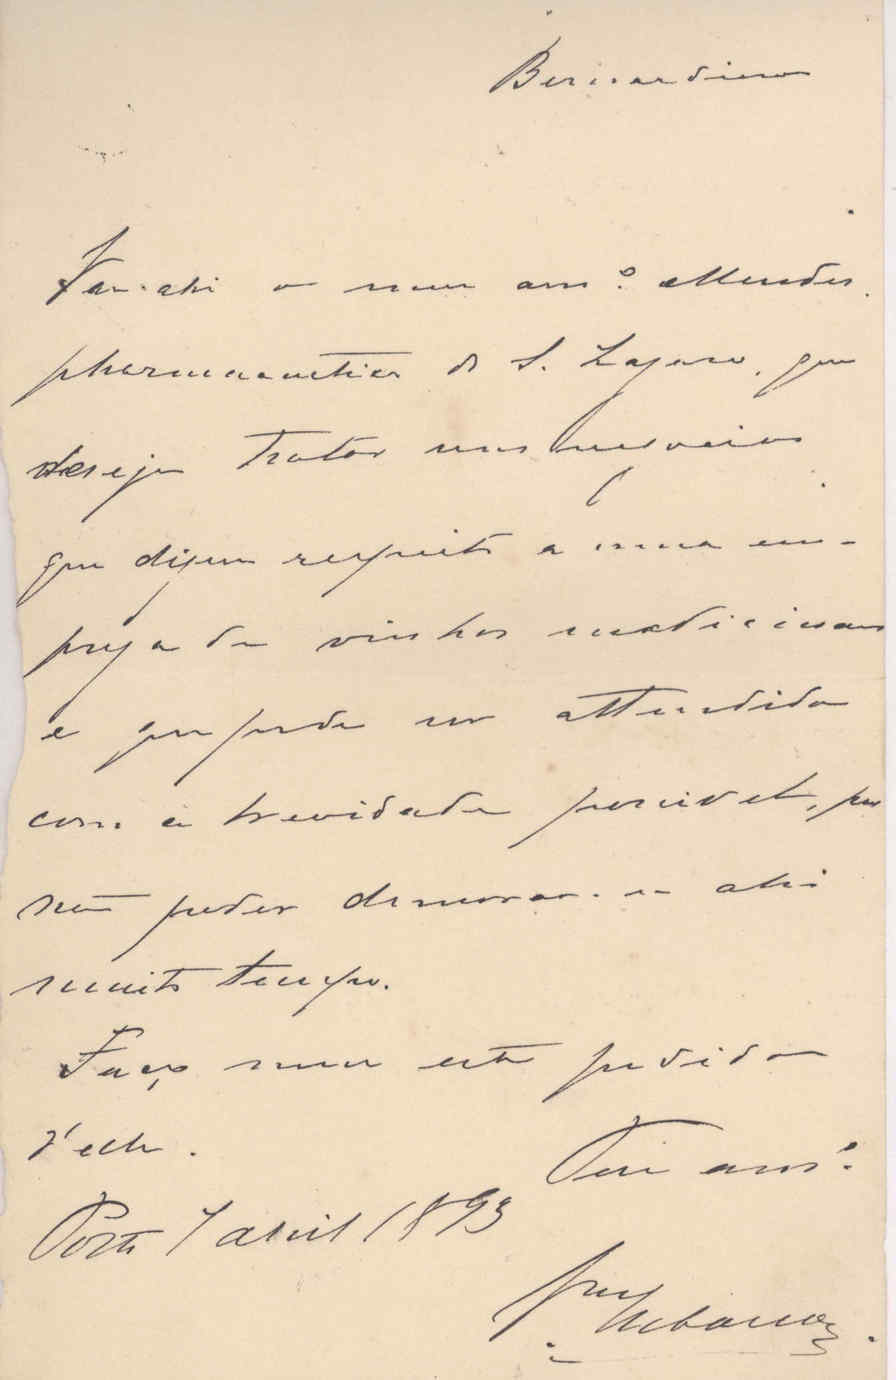 Bernardino
Vae ahi o meu am.º Mendes,
pharmaceutico de S. Lazaro, que
deseja tratar uns negocios
que dizem respeito a uma em-
preza de vinhos medicinaes
e que pede ser attendido
com a brevidade possivel, por
não poder demorar-se ahi
muito tempo.
Faço meu este pedido
d'elle.
Teu am.º
Porto 7 abril 1893